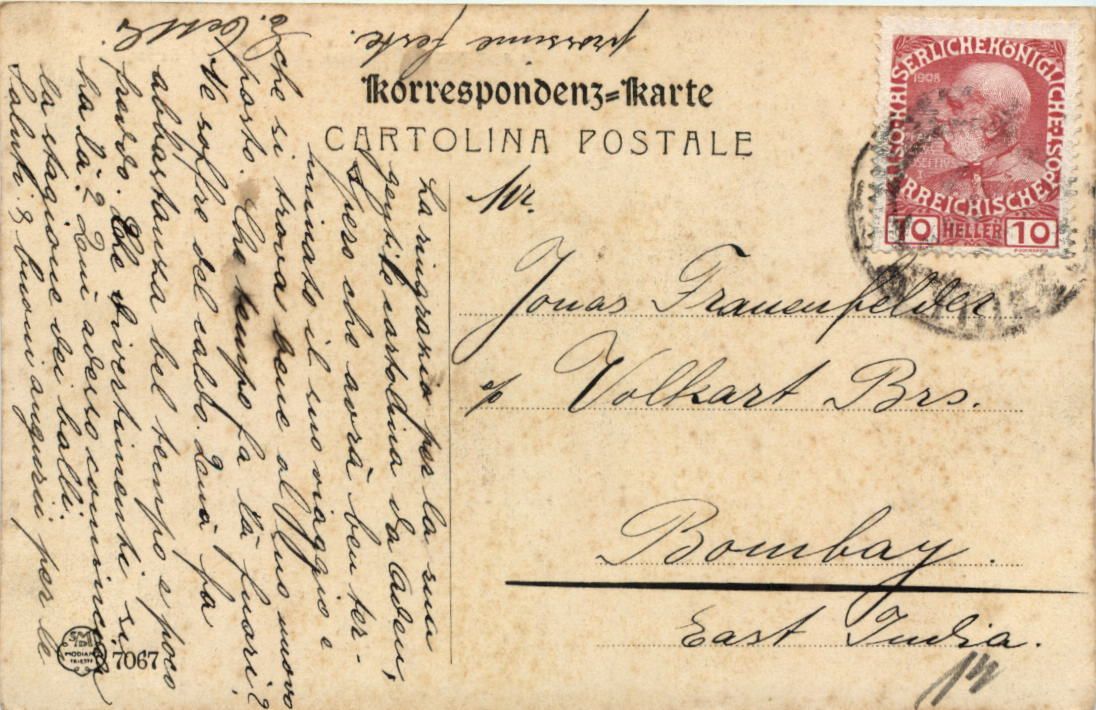 Korrespondenz=Karte
CARTOLINA POSTALE
1908
KAISERLICHEKÖNIGLICHE POST
ÖSTERREICHISCHE
10 HELLER 10
Mr.
Jonas Frauenfelder
Volkart Brs.
Bombay.
East India.
La ringrazio per la sua
gentile cartolina da Aden,
spero che avrà ben ter-
minato il suo viaggio e
che si trova bene al suo nuovo
posto. Che tempo fa là fuori?
soffre del caldo. Quà fa
abbastanza bel tempo e poco
freddo. Che divertimenti si
ha là? Quì adesso comincia
la stagione dei balli.
Saluti & buoni augurii per le
prossime feste.
SMD
MODIANO
TRIESTE
7067